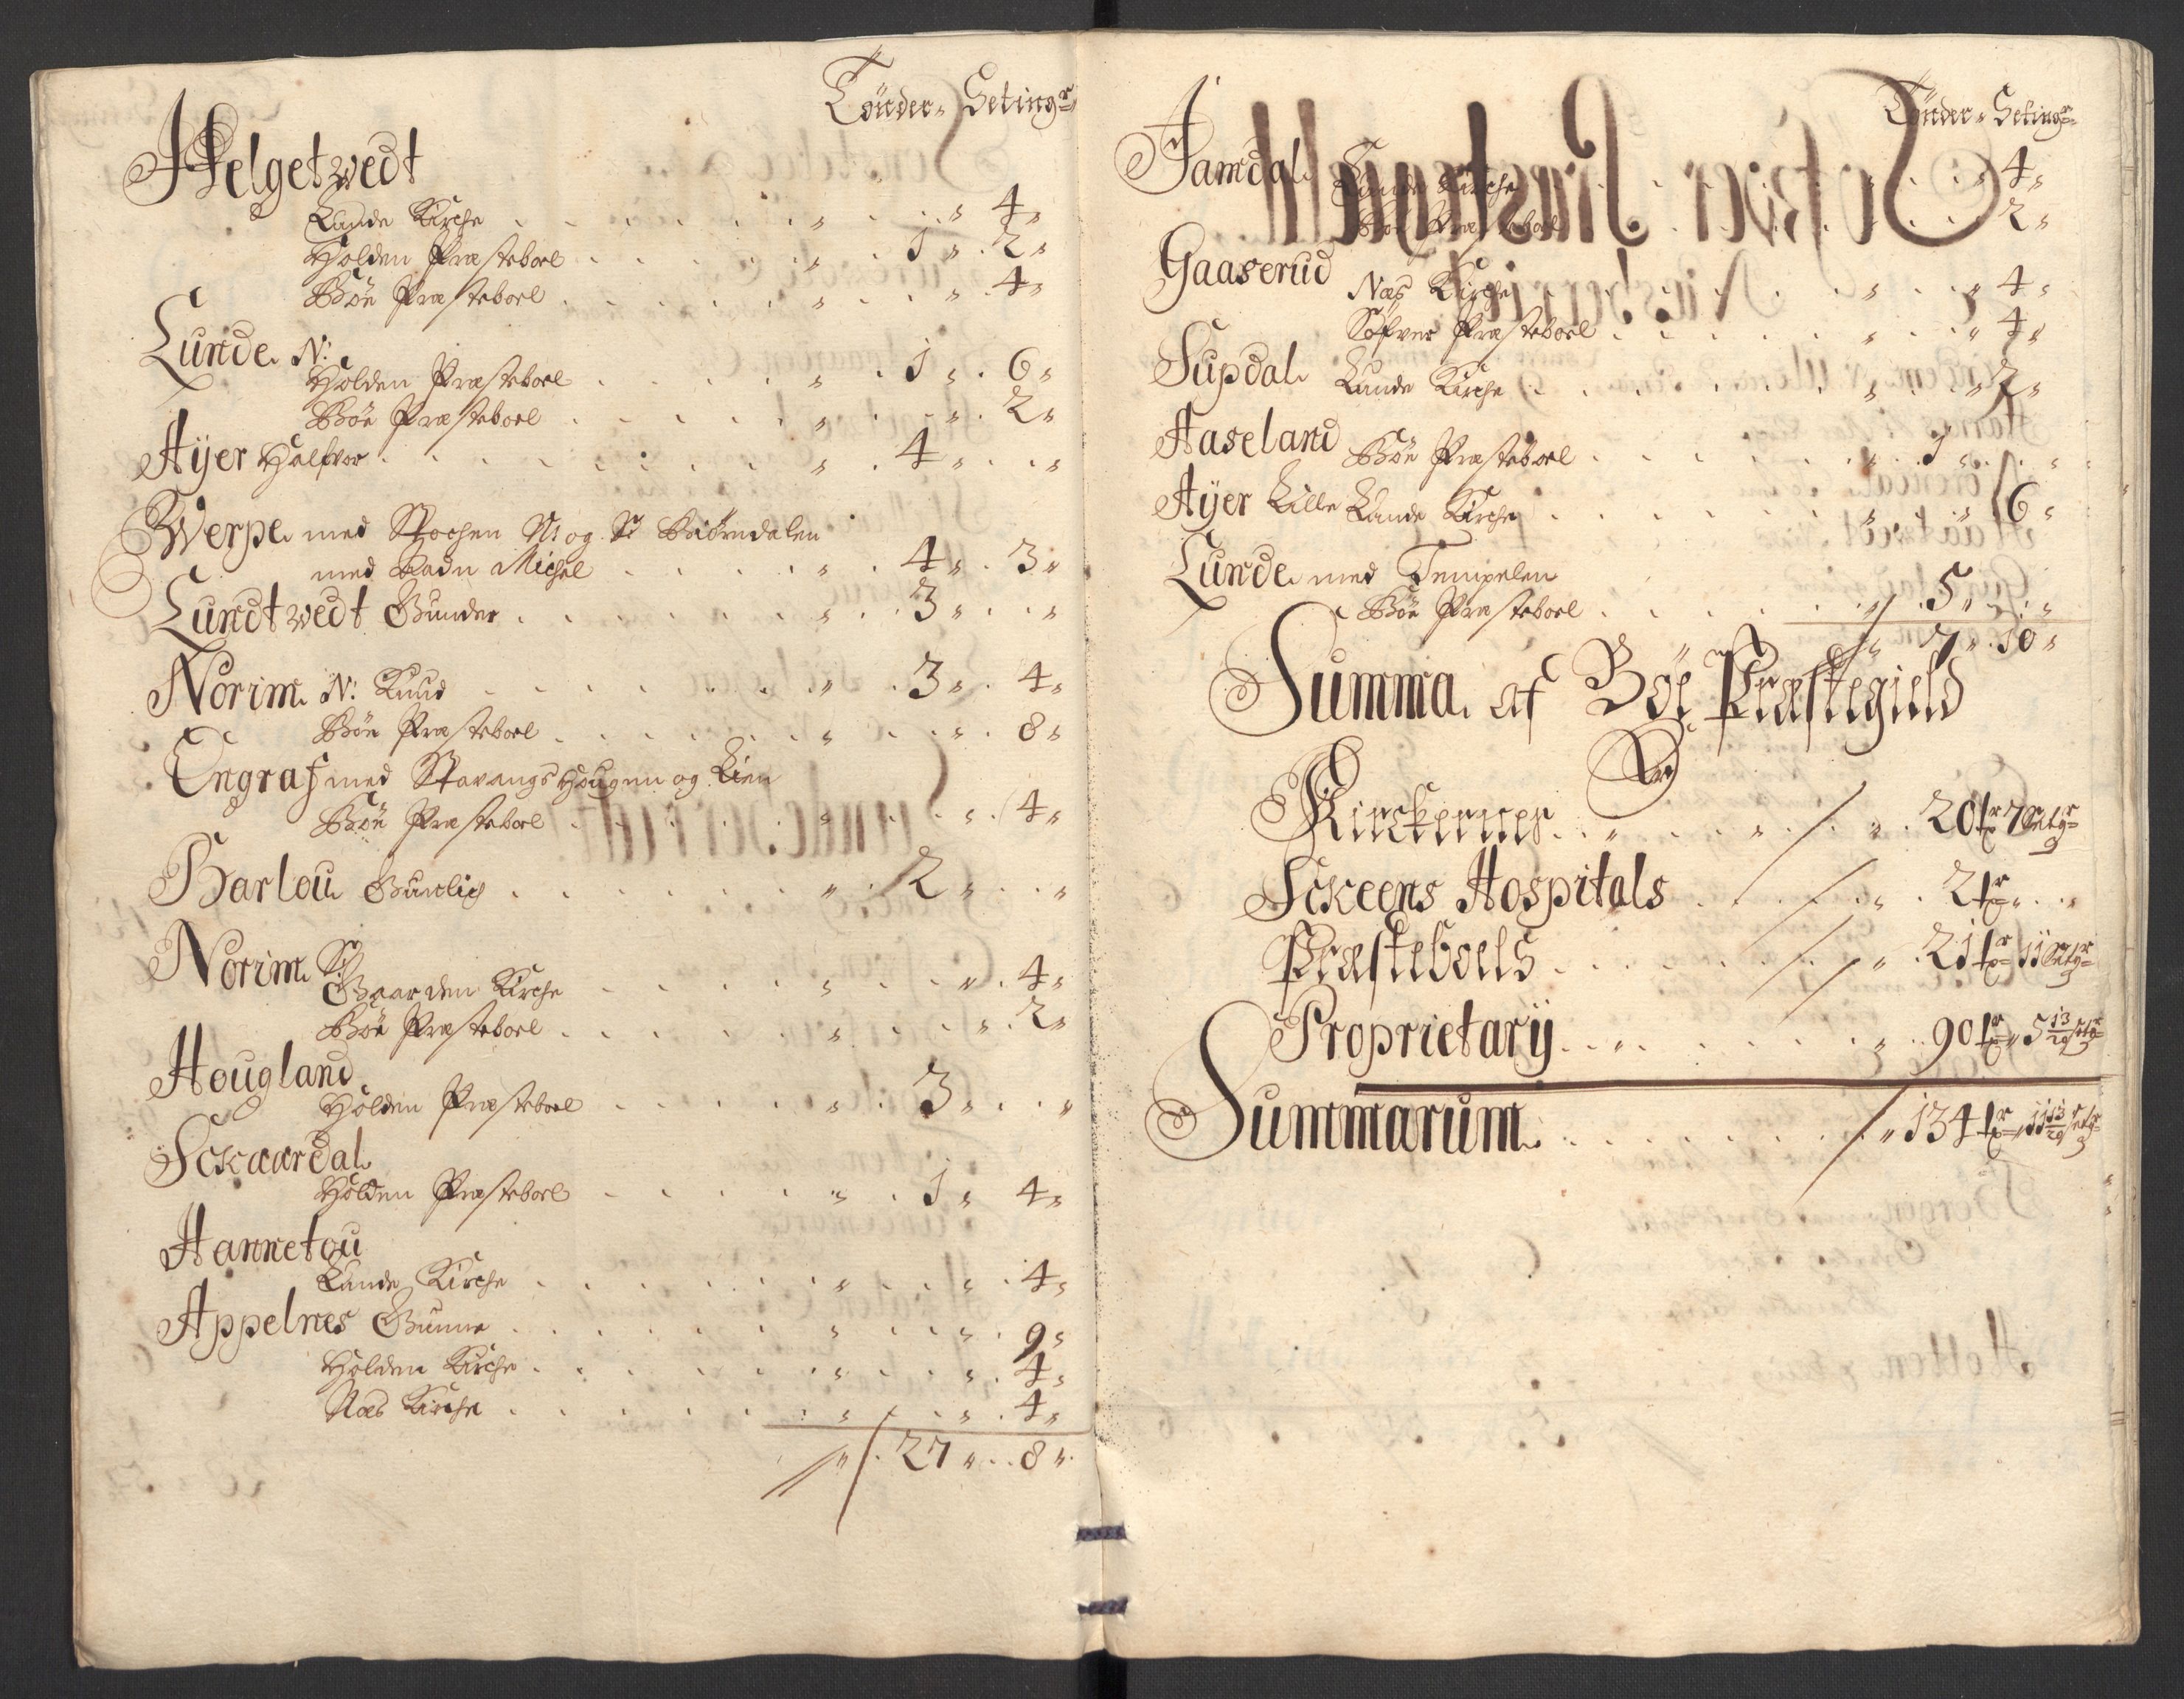 Tönder, Setingr
Helgetwedt
Lunde Kirche 4
Holden Præsteboel 1 2
Böe Præsteboel 4
Lunde N:
Holden Præsteboel 1 6
Böe Præsteboel 2
Aÿer Halfvor 4
Werpe med N: og S: Biörndalen
med Michel 4 3
Lundtwedt Gunder 3
Norim N: Knud 3 4
Böe Præsteboel 8
Engraf med Stavangs Hougen og Lien
Böe Præsteboel 4
Barlou Gunlich 2
Norim S:
Gaarden Kirche 4
Böe Præsteboel 2
Hougland
Holden Præsteboel 3
Sckaardal
Holden Præsteboel 1 4
Hannetou
Lunde Kirche 4
Appelnes Gunne 9
Holden Kirche 4
Næs Kirche 4
27 8
Tönder, Setingr
Jamdal Lunde Kirche 4
Böe Præsteboel 2
Gaaserud Næs Kirche 4
Söfver Præsteboel 4
Supdal Lunde Kirche 2
Haseland Böe Præsteboel 1
Aÿer Lille Lunde Kirche 6
Lunde med Tempelen
Böe Præsteboel 5
7 10
Summa af Böe Præstegield
Kirckernes 20 tr 7 Setgr
Sckeens Hospitals 2 tr
Præsteboels 21 tr 11 Setgr
Proprietarÿ 90 tr 5 13/20 setgr
Summarum 134 tr 11 13/20 setgr